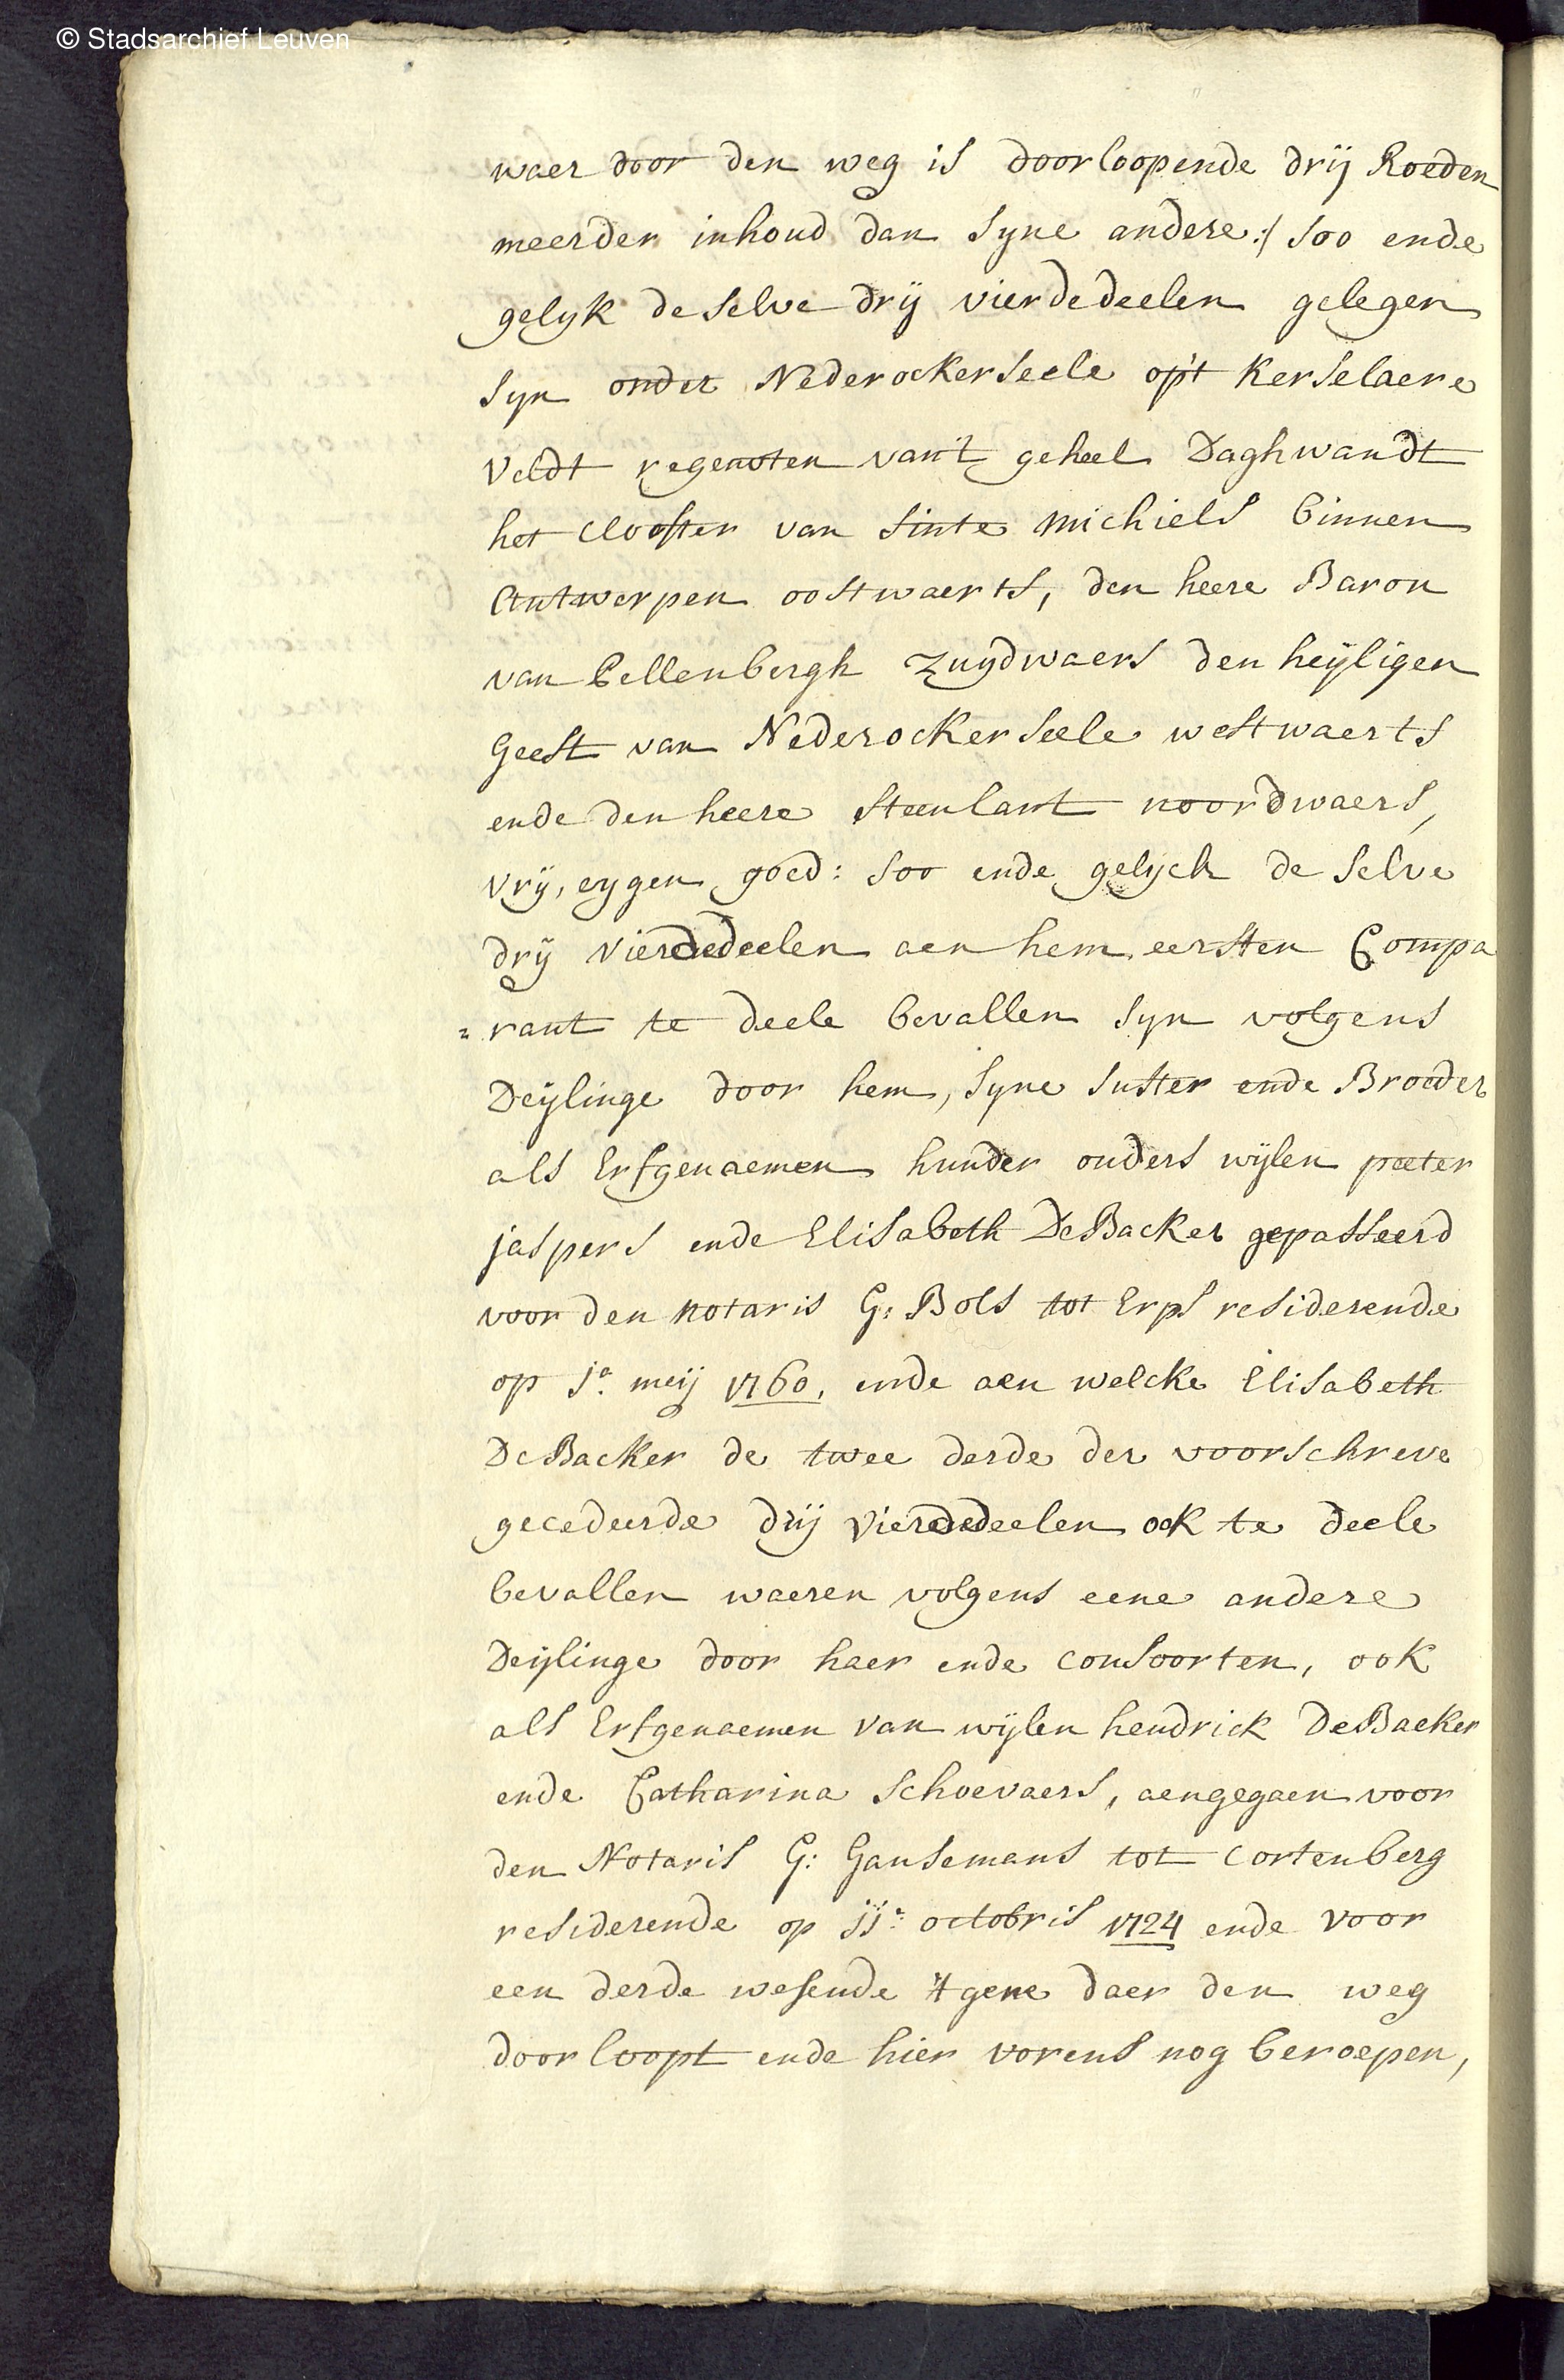 © Stadsarchief Leuven
waer door den weg is doorloopende drij Roeden
meerder inhoud dan syne andere:/ soo ende
gelyk de selve drij vierdedeelen gelegen
syn onder Nederockerseele op't Kerselaere
veldt regenoten van't geheel Daghwandt
het clooster van sinte Michiels binnen
Antwerpen oostwaerts, den heere Baron
van bellenbergh zuydwaers den heyligen
Geest van Nederockerseele westwaerts
ende den heere steenlant noordwaers,
vrij, eygen goed: soo ende gelyck de selve
drij vierdedeelen aen hem eersten Compa
=rant te deele bevallen syn volgens
Deylinge door hem, syne suster ende Broeder
als Erfgenaemen hunder ouders wylen peeter
jaspers ende Elisabeth DeBacker gepasseerd
voor den notaris G: Bols tot Erps residerende
op j.ᵃ meij 1760, ende aen welcke Elisabeth
DeBacker de twee derde der voorschreve
gecedeerde drij vierdedeelen ook te deele
bevallen waeren volgens eene andere
Deylinge door haer ende consoorten, ook
als Erfgenaemen van wylen hendrick DeBacker
ende Catharina schoevaers, aengegaen voor
den Notaris G: Gansemans tot Cortenberg
residerende op jj.ᵃ octobris 1724 ende voor
een derde wesende 't gene daer den weg
doorloopt ende hier vorens nog beroepen,